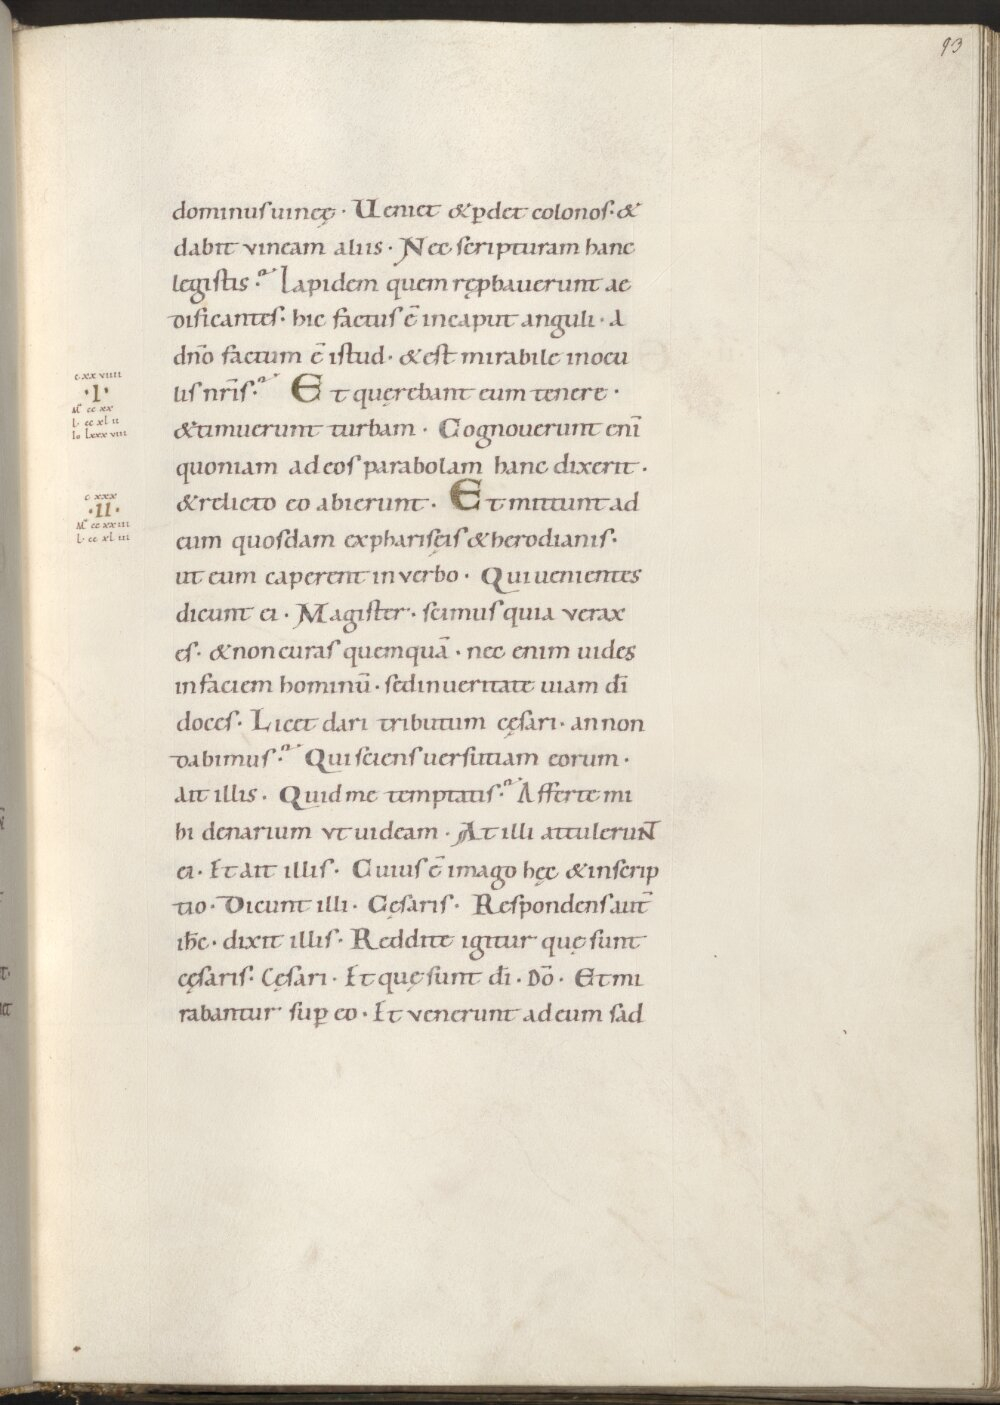 93
dominus uineę · Ueniet & p̱det colonos · &
dabit vineam aliis · Nec scripturam hanc
legistis · Lapidem quem rep̱bauerunt ae
dificantes · hic factus ē in caput anguli · A
dn̄o factum ē istud · & est mirabile in ocu
lis nr̄is · Et quęrebant eum tenere ·
& timuerunt turbam · Cognouerunt enī
quoniam ad eos parabolam hanc dixerit ·
& relicto eo abierunt · Et mittunt ad
eum quosdam ex pharisęis & herodianis ·
ut eum caperent in verbo · Qui uenientes
dicunt ei · Magister · scimus quia verax
es · & non curas quemquā · nec enim uides
in faciem hominū · sed in ueritate uiam dī
doces · Licet dari tributum cęsari · an non
dabimus · Qui sciens uersutiam eorum ·
Ait illis · Quid me temptatis · Afferte mi
hi denarium vt uideam · At illi attulerunt
ei · Et ait illis · Cuius ē imago hęc & inscrip
tio · Dicunt illi · Cęsaris · Respondens aut̄
ih̄c · dixit illis · Reddite igitur quę sunt
cęsaris · Cęsari · Et quę sunt dī · Dō · Et mi
rabantur sup̱ eo · Et venerunt ad eum sad
c xx viiii
· I ·
M̄ cc xx
l · cc xl ii
Io lxxx viii
c xxx
· II ·
M̄ cc xx iii
l · cc xl iii